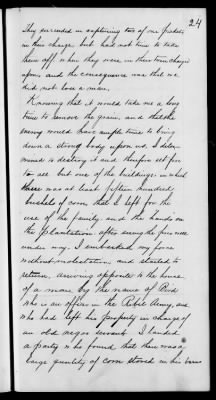 24
They succeeded in capturing two of our pickets
in their charge but had not time to take
them off, when they were in their turn charged
upon, and the consequence was that we
did not lose a man.
Knowing that it would take me a long
time to remove the grain, and that the
enemy would have ample time to bring
down a strong body upon us, I deter-
mined to destroy it and therefore set fire
to all but one of the buildings in which
there was at least fifteen hundred
bushels of corn, that I left for the
use of the family and the hands on
the plantation. After seeing the fire well
under way, I embarked my force
without molestation and started to
return, arriving opposite to the house
of a man by the name of
who is an officer in the Rebel Army, and
who had left his property in charge of
an old negro servant. I landed
a party who found that there was a
large quantity of corn stored in his barns